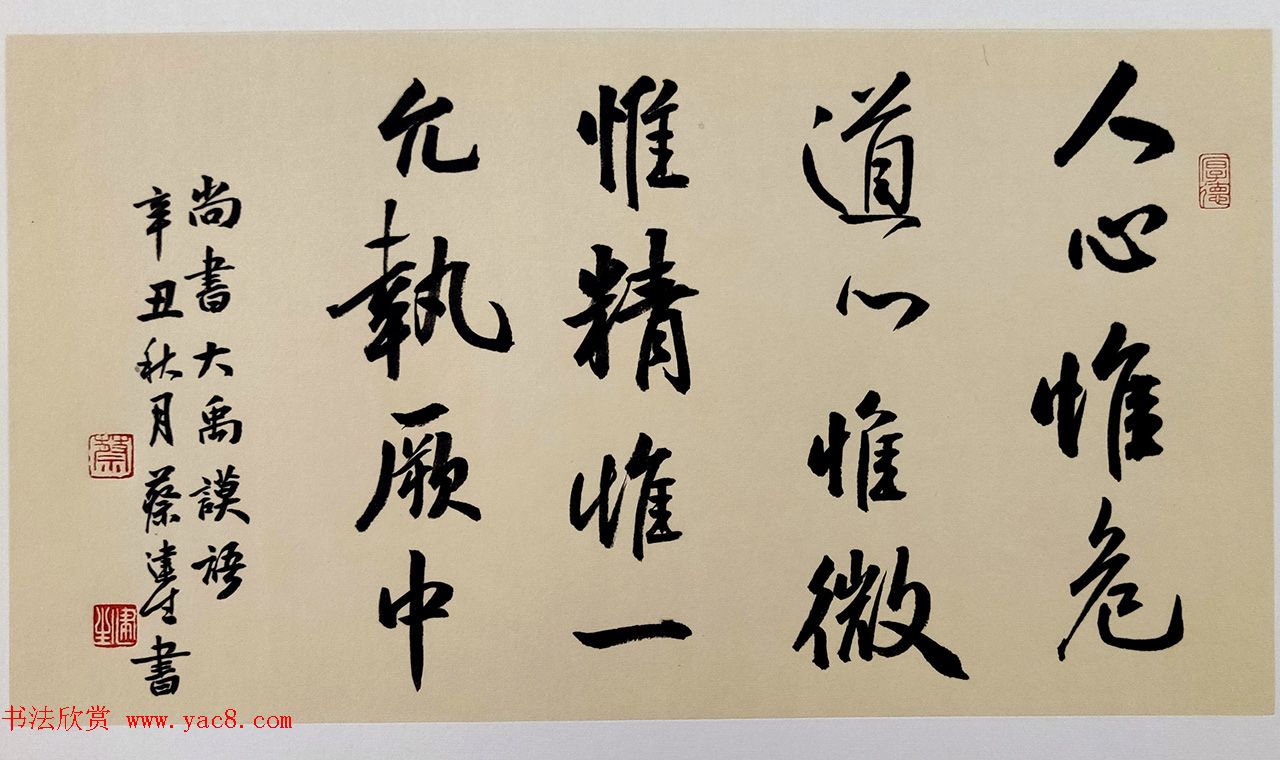 人心惟危
道心惟微
惟精惟一
允執厥中
尚書大禹謨語
辛丑秋月蔡建生書
厚德
蔡
建生
书法欣赏 www.yac8.com